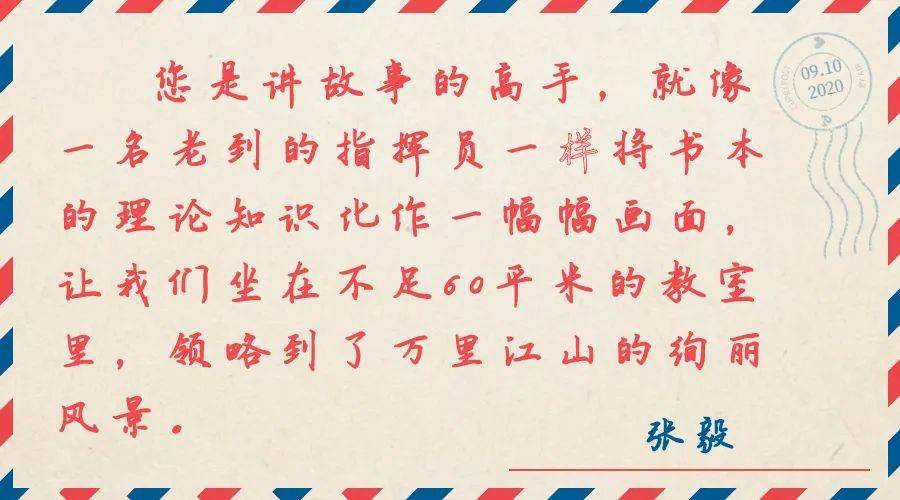 您是讲故事的高手，就像
一名老到的指挥员一样将书本
的理论知识化作一幅幅画面，
让我们坐在不足60平米的教室
里，领略到了万里江山的绚丽
风景。
张毅
09.10
2020